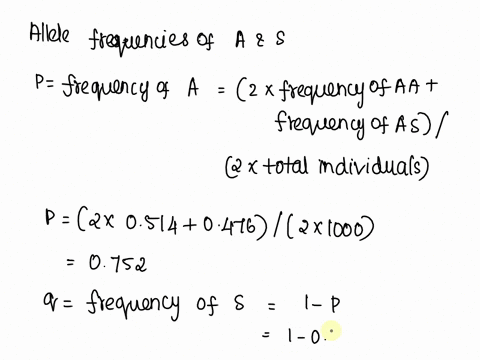 Allele frequencies of A & S
P = frequency of A = (2 x frequency of AA +
frequency of AS) /
(2 x total individuals)
P = (2 x 0.514 + 0.476) / (2 x 1000)
= 0.752
q = frequency of S = 1 - P
= 1 - 0.